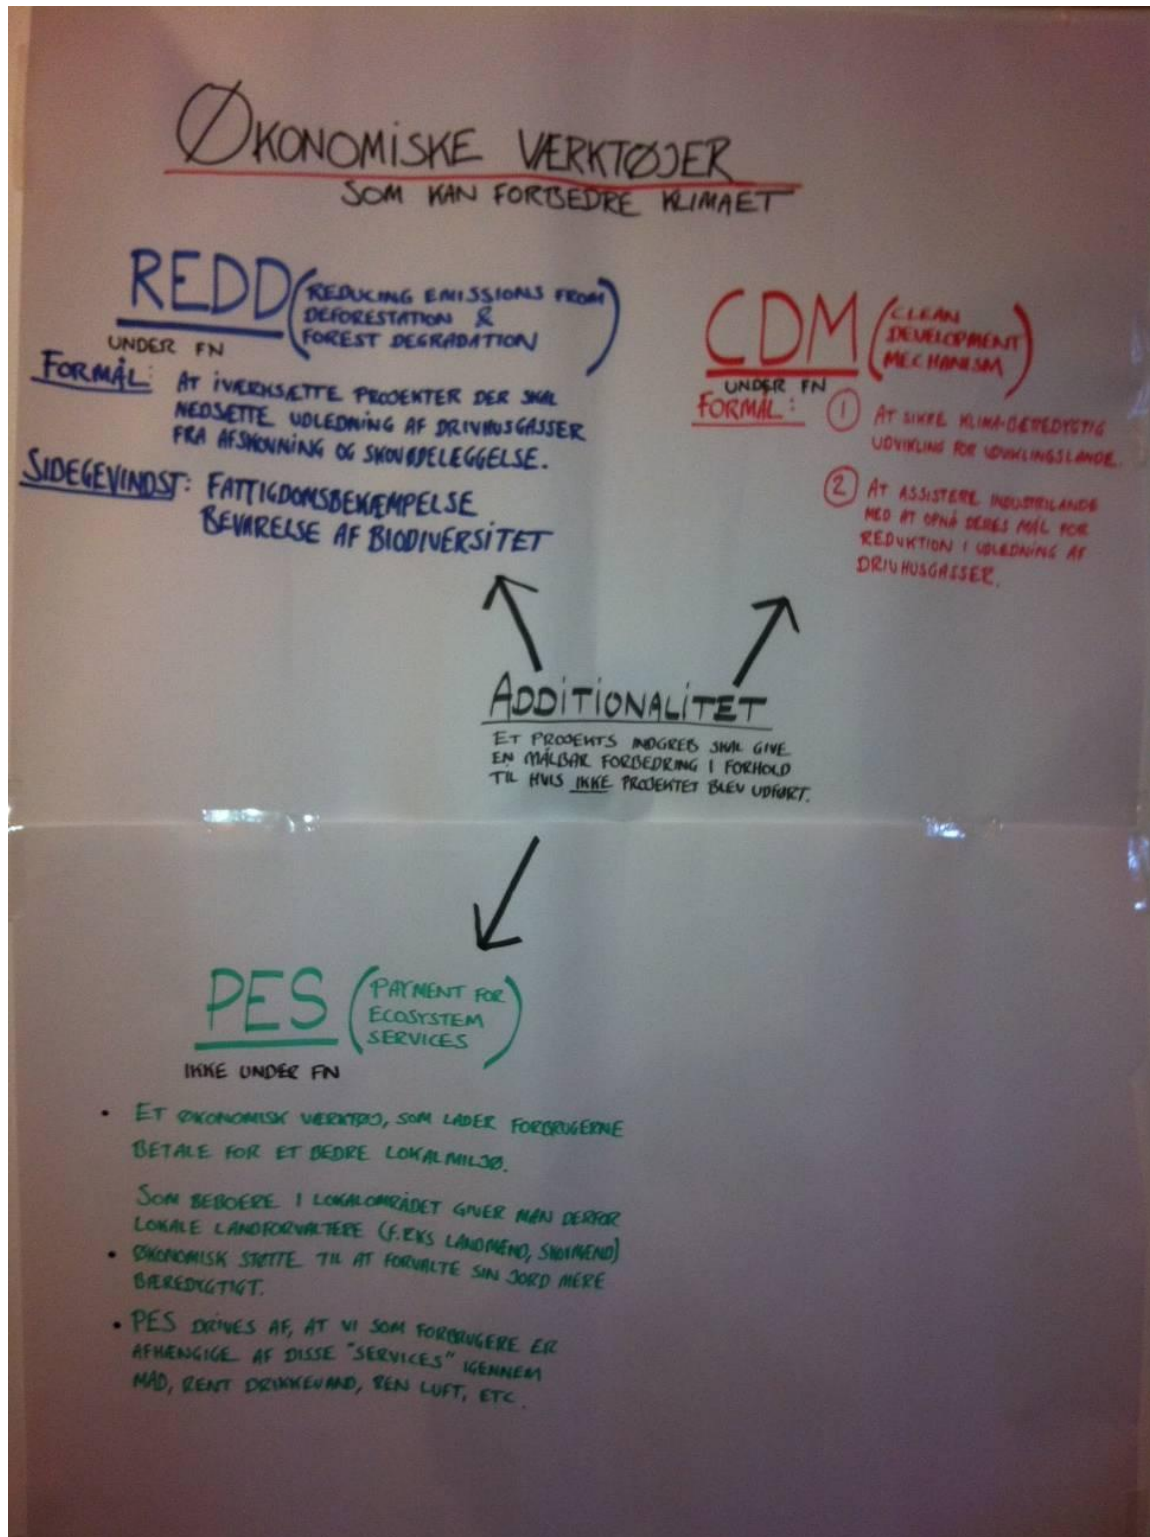 ØKONOMISKE VÆRKTØJER
SOM KAN FORBEDRE KLIMAET
REDD (REDUCING EMISSIONS FROM
DEFORESTATION &
FOREST DEGRADATION)
UNDER FN
FORMÅL: AT IVÆRKSÆTTE PROJEKTER DER SKAL
NEDSÆTTE UDLEDNING AF DRIVHUSGASSER
FRA AFSKOVNING OG SKOVØDELEGGELSE.
SIDEGEVINDST: FATTIGDOMSBEKÆMPELSE
BEVARELSE AF BIODIVERSITET
CDM (CLEAN
DEVELOPMENT
MECHANISM)
UNDER FN
FORMÅL: 1 AT SIKRE KLIMA-BÆREDYGTIG
UDVIKLING FOR UDVIKLINGSLANDE.
2 AT ASSISTERE INDUSTRILANDE
MED AT OPNÅ DERES MÅL FOR
REDUKTION I UDLEDNING AF
DRIVHUSGASSER.
ADDITIONALITET
ET PROJEKTS INDGREB SKAL GIVE
EN MÅLBAR FORBEDRING I FORHOLD
TIL HVIS IKKE PROJEKTET BLEV UDFØRT.
PES (PAYMENT FOR
ECOSYSTEM
SERVICES)
IKKE UNDER FN
• ET ØKONOMISK VÆRKTØJ, SOM LADER FORBRUGERNE
BETALE FOR ET BEDRE LOKALMILJØ.
SOM BEBOERE I LOKALOMRÅDET GIVER MAN DERFOR
LOKALE LANDFORVALTERE (F.EKS LANDMÆND, SKOVMÆND)
• ØKONOMISK STØTTE TIL AT FORVALTE SIN JORD MERE
BÆREDYGTIGT.
• PES DRIVES AF, AT VI SOM FORBRUGERE ER
AFHÆNGIGE AF DISSE "SERVICES" IGENNEM
MAD, RENT DRIKKEVAND, REN LUFT, ETC.